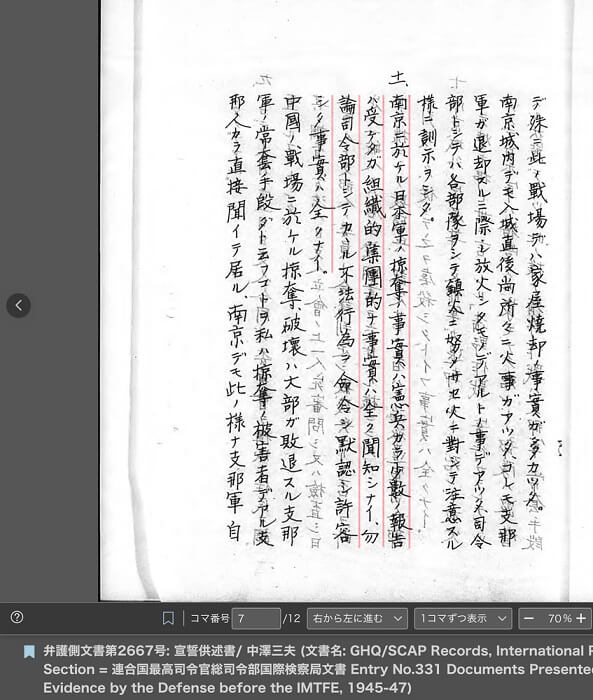 デ殊ニ此ノ戦場デハ家屋焼却ノ事實ガ多カツタ。
南京城内デモ入城直後尚所々ニ火事ガアツタコレモ支那
軍ガ退却スルニ際シ放火シタモノデアルトノ事デアツタ、司令
部トシテハ各部隊ヲシテ鎮火ニ努メサセ火ニ對シテ注意スル
様ニ訓示ヲシタ。
十一、南京ニ於ケル日本軍ノ掠奪ノ事實ハ憲兵カラ少數ノ報告
ハ受ケタガ組織的集團的ナ事實ハ全ク聞知シナイ、勿
論司令部トシテカヽル不法行為ヲ命令シ默認シ許容
シタ事實ハ全クナイ。
中國ノ戦場ニ於ケル掠奪、破壊ハ大部ガ敗退スル支那
軍ノ常套手段ダト云フコトヲ私ハ掠奪ノ被害者デアル支
那人カラ直接聞イテ居ル、南京デモ此ノ様ナ支那軍自
コマ番号 7 /12 右から左に進む 1コマずつ表示 − 70% +
弁護側文書第2667号: 宣誓供述書/ 中澤三夫 (文書名: GHQ/SCAP Records, International
Section = 連合国最高司令官総司令部国際検察局文書 Entry No.331 Documents Presente
Evidence by the Defense before the IMTFE, 1945-47)